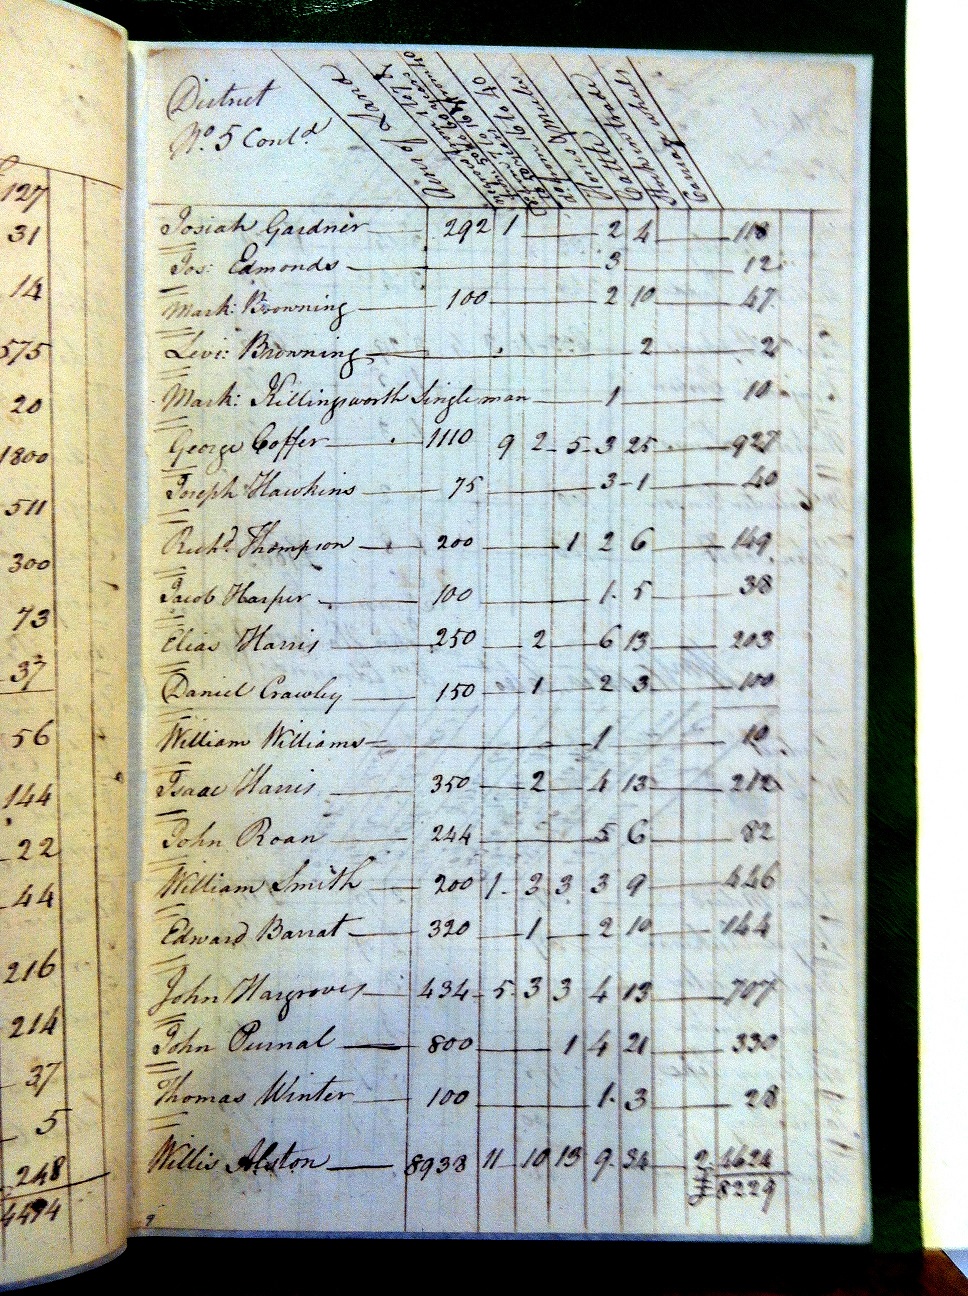 127
31
14
575
20
1800
511
300
73
37
56
144
22
44
216
214
37
5
248
4494
District
No. 5 Contd.
Acres of Land
Negroes
from 16 to 40
Horses & Mules
Cattle
Stock in trade
Carriage wheels
Josiah Gardner 292 1 2 4 118
Jos: Edmonds 3 12
Mark: Browning 100 2 10 47
Levi: Browning 2 2
Mark: Killingsworth Single man 1 10
George Coffer 1110 9 2 5 3 25 927
Joseph Hawkins 75 3 1 40
Richd. Thompson 200 1 2 6 149
Jacob Harper 100 1 5 38
Elias Harris 250 2 6 13 203
Daniel Crawley 150 1 2 3 100
William Williams 1 10
Isaac Harris 350 2 4 13 212
John Roan 244 5 6 82
William Smith 200 1 3 3 3 9 446
Edward Barrat 320 1 2 10 144
John Hargroves 434 5 3 3 4 13 707
John Purnal 800 1 4 21 330
Thomas Winter 100 1 3 28
Willis Alston 8938 11 10 13 9 34 2 4624
8229